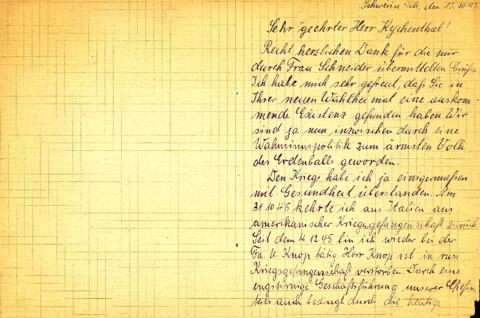 Schwerin Meckl., den 13.10.47.
Sehr geehrter Herr Kychenthal!
Recht herzlichen Dank für die mir
durch Frau Schneider übermittelten Grüße
Ich habe mich sehr gefreut, daß Sie in
Ihrer neuen Wahlheimat eine auskom-
mende Existenz gefunden haben. Wir
sind ja nun inzwischen durch eine
Wahnsinnspolitik zum ärmsten Volk
des Erdenballs geworden.
Den Krieg habe ich ja einigermaßen
mit Gesundheit überstanden. Am
31.10.45 kehrte ich aus Italien aus
amerikanischer Kriegsgefangenschaft zurück.
Seit dem 4.12.45 bin ich wieder bei der
Fa. Knop tätig. Herr Knop ist in russ.
Kriegsgefangenschaft verstorben. Durch eine
engstirnige Geschäftsführung unserer Chefin
teils auch bedingt durch die heutige